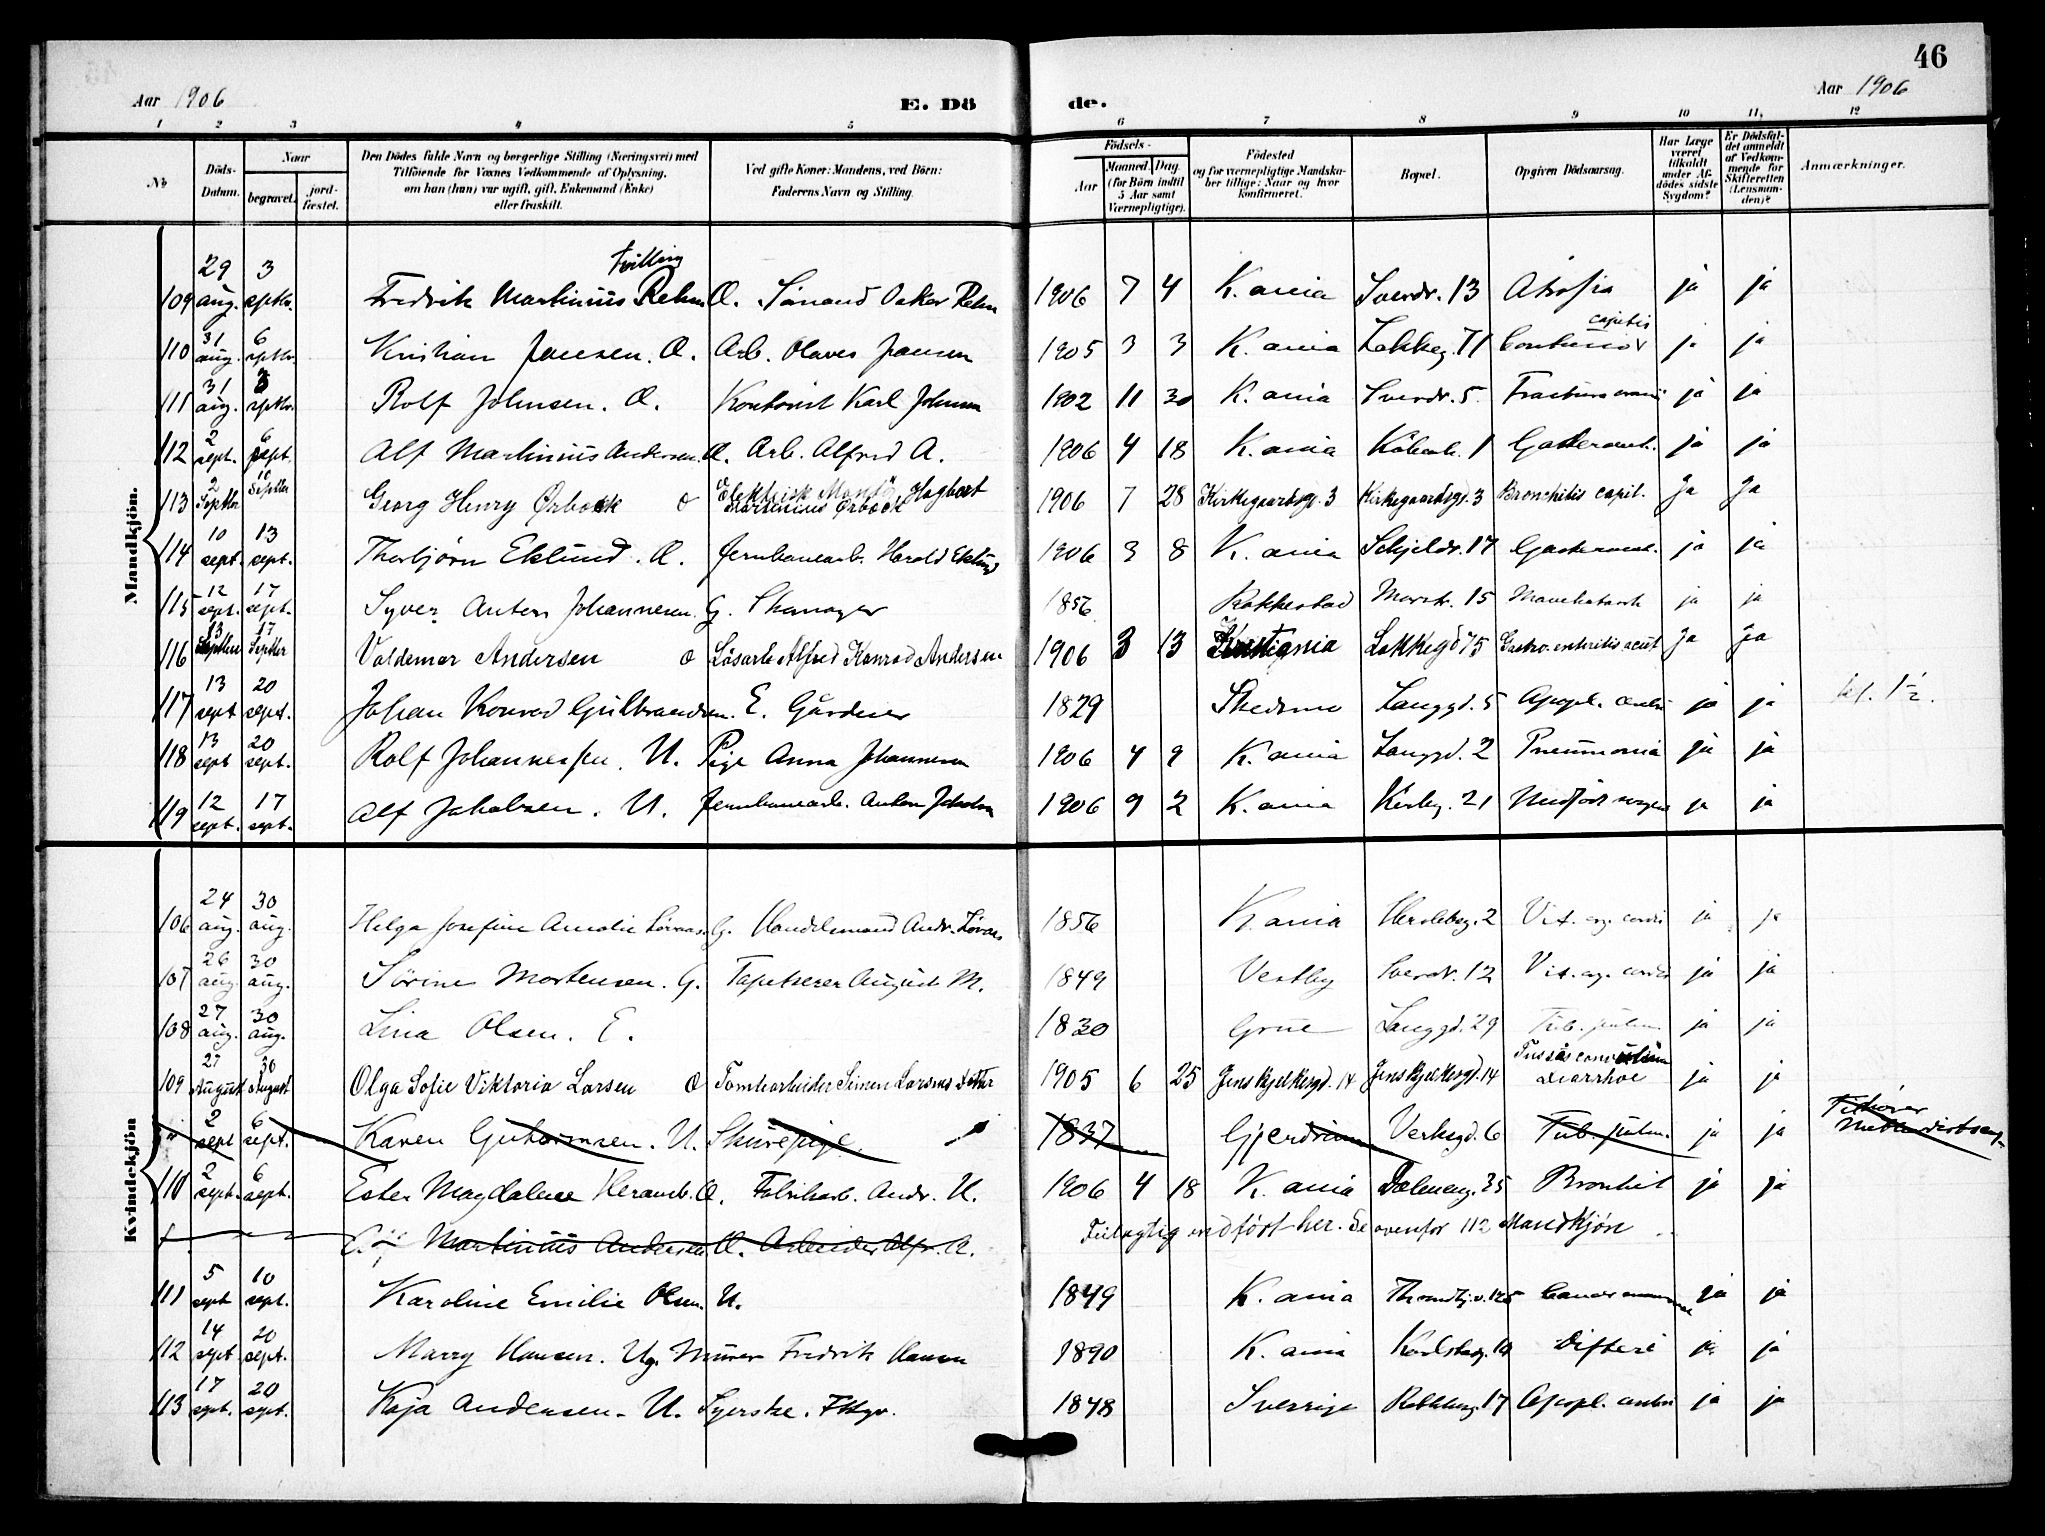 46
Aar 1906
E. Dö
de.
Aar 1906
1 2 3 4 5 6 7 8 9 10 11, 12
No
Döds-
Datum.
Naar
begravet.
jord-
fæstet.
Den Dödes fulde Navn og borgerlige Stilling (Næringsvei) med
Tilföiende for Voxnes Vedkommende af Oplysning,
om han (hun) var ugift, gift, Enkemand (Enke)
eller fraskilt.
Ved gifte Koner: Mandens, ved Börn:
Faderens Navn og Stilling.
Födsels-
Aar
Maaned. Dag.
(for Börn indtil
5 Aar samt
Værnepligtige).
Födested
og for værnepligtige Mandska-
ber tillige: Naar og hvor
konfirmeret.
Bopæl.
Opgiven Dödsaarsag.
Har Læge
været
tilkaldt
under Af-
dödes sidste
Sygdom?
Er Dödsfal-
det anmeldt
af Vedkom-
mende for
Skifteretten
(Lensman-
den)?
Anmærkninger.
Mandkjön.
109 29 aug. 3 septbr. Fredrik Martinius Rehn tvilling O. Oskar Rehn 1906 7 4 K.ania Sverdr. 13 Atrofia ja ja
110 31 aug. 6 septbr. Kristian Jansen. O. Arb. Olaves Jansen 1905 3 3 K.ania Lakkeg. 71 Contusio capitis ja ja
111 31 aug. 3 septbr. Rolf Johnsen. O. Kontorist Karl Johnsen 1902 11 30 K.ania Sverdr. 5. Fractura cranii ja ja
112 2 sept. 6 sept. Alf Martinius Andersen. O. Arb. Alfred A. 1906 4 18 K.ania 1 Gastroent. ja ja
113 2 Septbr 10 Septbr Georg Henry Ørbæck O Elektrisk Montør Hagbart Martinius Ørbæck 1906 7 28 Kirkegaardsgt. 3 Kirkegaardsgd. 3 Bronchitis capil. Ja Ja
114 10 sept. 13 sept. Thorbjørn Eklund. O. Jernbanearb. Harald Eklund 1906 3 8 K.ania Schjeldr. 17 Gastroent. ja ja
115 12 sept. 17 sept. Syver Anton Johannesen. G. Skomager 1856 Rakkestad Morstr. 15 Mavekatarrh ja ja
116 13 Septbr 17 Septbr Valdemar Andersen O Løsarb Alfred Konrad Andersen 1906 3 13 Kristiania Lakkegd 75 Gastro-enteritis acut Ja Ja
117 13 sept. 20 sept. Johan Konrad Gulbrandsen. E. Gårdner 1829 Skedsmo Langgd. 5 Apopl. cerebri ja ja bef. 1½.
118 13 sept 20 sept. Rolf Johannessen. U. Pige Anna Johannesen 1906 4 9 K.ania Langgd. 2 Pneumonia ja ja
119 12 sept. 17 sept. Alf Jakobsen. U. Jernbanearb. Anton Jakobsen 1906 9 2 K.ania 21 Medfødt svaghed ja ja
Kvindekjön
106 24 aug. 30 aug. Helga Josefine Amalie Løvaas. G. Handelsmand Andr. Løvaas 1856 K.ania Herslebsg. 2 Vit. org. cordis ja ja
107 26 aug. 30 aug. Sørine Mortensen. G. Tapetserer August M. 1849 Vestby Sverdr. 12 Vit. org. cordis ja ja
108 27 aug. 30 aug. Lina Olsen. E. 1830 Grue Langgd. 29 Tub. pulm. ja ja
109 27 August 30 August Olga Sofie Viktoria Larsen O Tomtearbeider Simen Larsens Datter 1905 6 25 Jens Bjelkesgd. 14 Jens Bjelkesgd. 14 Tussis convulsiva Diarrhoe ja ja
" 2 sept 6 sept. Karen Guttormsen. U. Skurepige 1837 Gjerdrum Verksgd. 6 Tub. pulm. ja ja Tilhører
110 2 sept. 6 sept. Ester Magdalene Heramb. O. Fabrikarb. Andr. H. 1906 4 18 K.ania Dæleneng. 35 Bronkit ja ja
Martinius Andersen O. Arbeider Alfr. A. Feilagtig indført her. Se ovenfor 112 Mandkjøn
111 5 sept 10 sept. Karoline Emilie Olsen U. 1849 K.ania Throndhj.v. 125 Cancer mammae ja ja
112 14 sept 20 sept. Marry Hansen. Ug. Murer Fredrik Hansen 1890 K.ania Karlsborg. 10 Difteri ja ja
113 17 sept. 20 sept. Kaja Andersen. U. Syerske. 1848 Sverrige 17 Apopl. cerebri ja ja